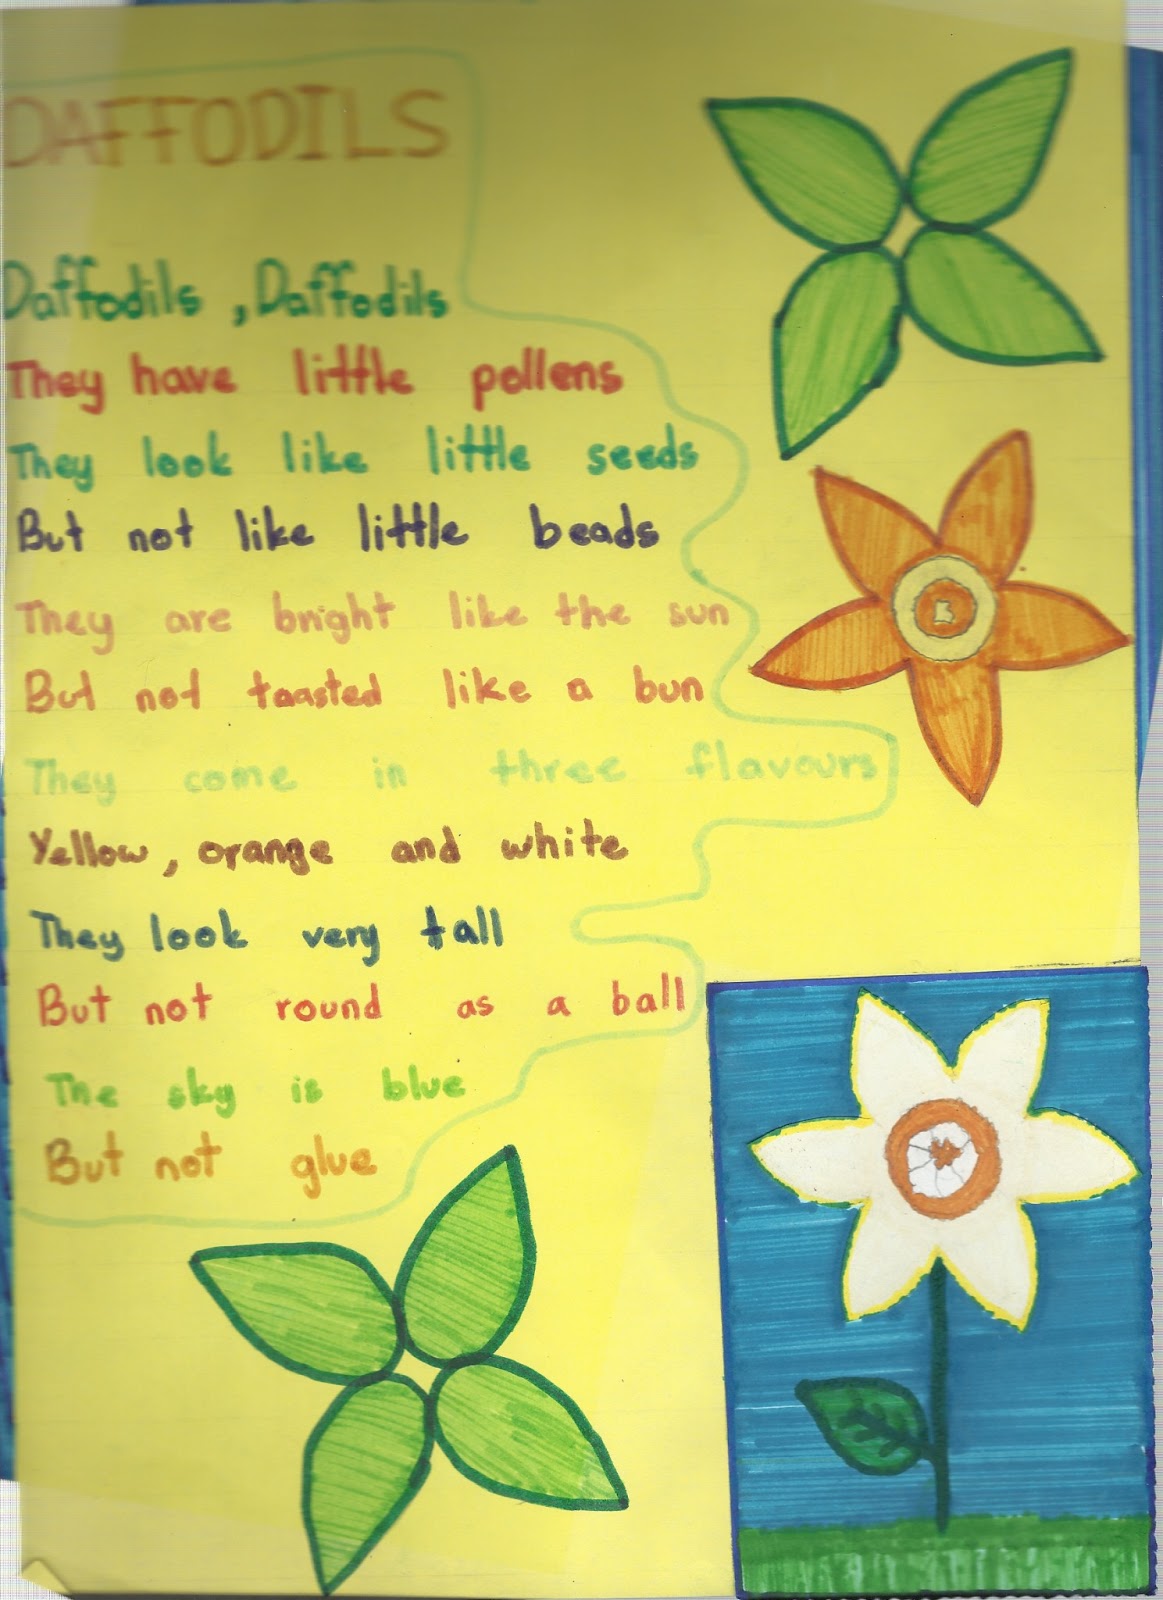 DAFFODILS
Daffodils , Daffodils
They have little pollens
They look like little seeds
But not like little beads
They are bright like the sun
But not toasted like a bun
They come in three flavours
Yellow, orange and white
They look very tall
But not round as a ball
The sky is blue
But not glue